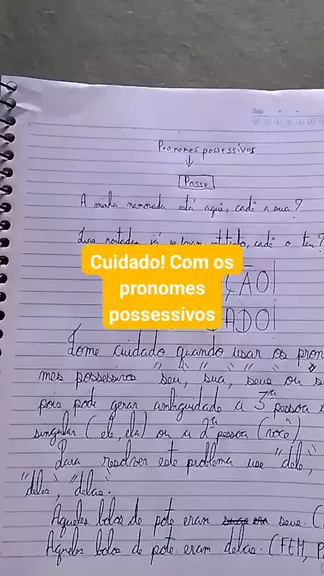 Pronomes possessivos
↓
Posse
A minha namorada está aqui, cadê a sua?
já cadê o teu?
Cuidado! Com os
pronomes
possessivos
ÇÃO
ADO!
Tome cuidado quando usar os pron
mes possessivos "seu", "sua", "seus ou s
pois pode gerar ambiguidade a 3ª pessoa
singular (ele, ela) ou a 2ª pessoa (você
Para resolver este problema use "dele",
"deles", "delas".
Aqueles bolos de pote eram seus. (
Aqueles bolos de pote eram delas. (FEM, P